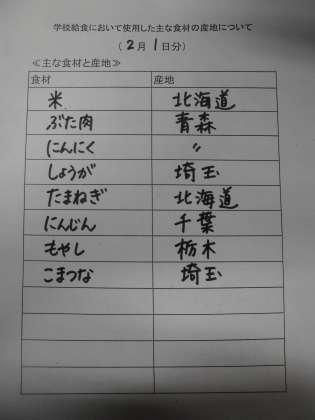 学校給食において使用した主な食材の産地について
(2月1日分)
≪主な食材と産地≫
食材 産地
米 北海道
ぶた肉 青森
にんにく 〃
しょうが 埼玉
たまねぎ 北海道
にんじん 千葉
もやし 栃木
こまつな 埼玉